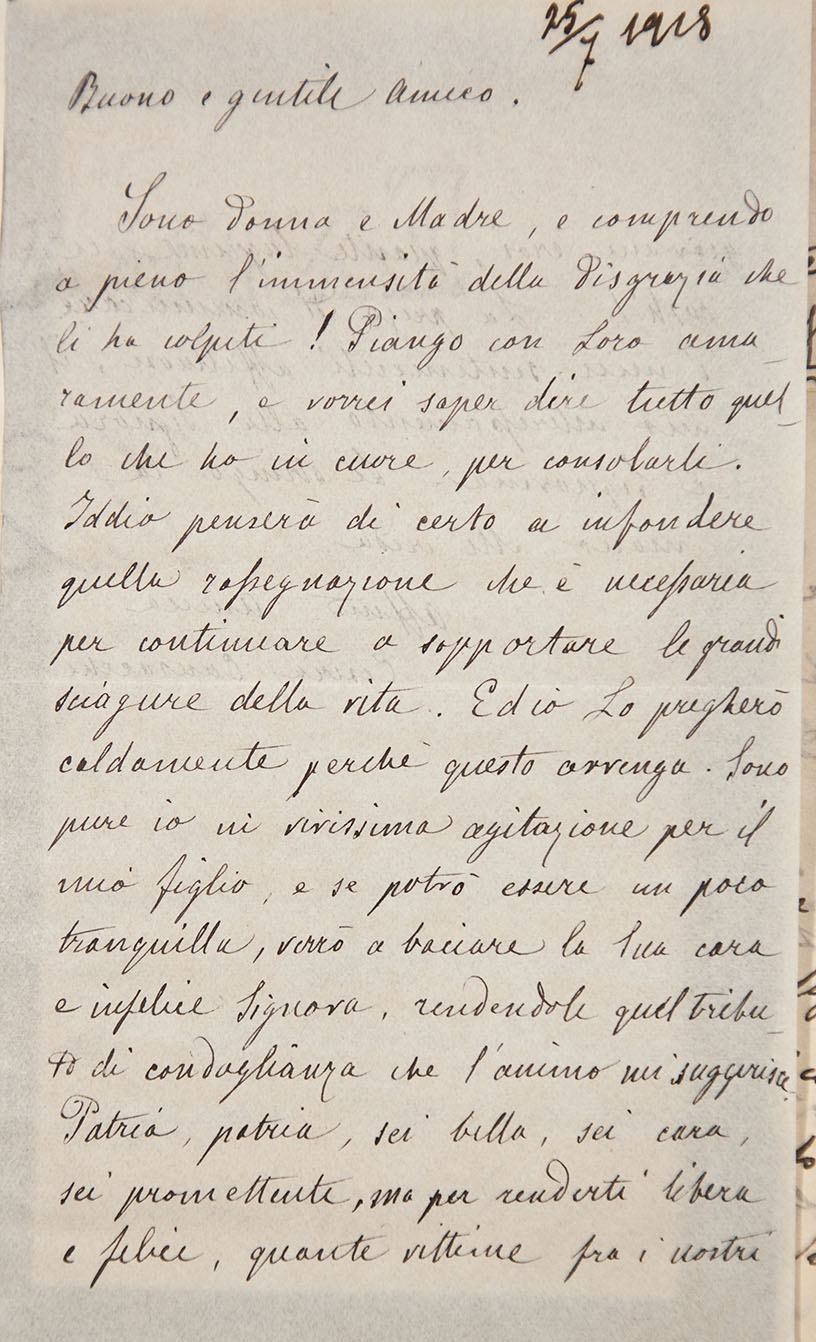 25/7 1918
Buono e gentile Amico.
Sono donna e Madre, e comprendo
a pieno l'immensità della disgrazia che
li ha colpiti! Piango con Loro ama-
ramente, e vorrei saper dire tutto quel-
lo che ho in cuore, per consolarli.
Iddio penserà di certo a infondere
quella rassegnazione che è necessaria
per continuare a sopportare le grandi
sciagure della vita. Ed io Lo pregherò
caldamente perchè questo avvenga. Sono
pure io in vivissima agitazione per il
mio figlio, e se potrò essere un poco
tranquilla, verrò a baciare la Sua cara
e infelice Signora, rendendole quel tribu-
to di condoglianza che l'animo mi suggerisce.
Patria, patria, sei bella, sei cara,
sei promettente, ma per renderti libera
e felice, quante vittime fra i nostri